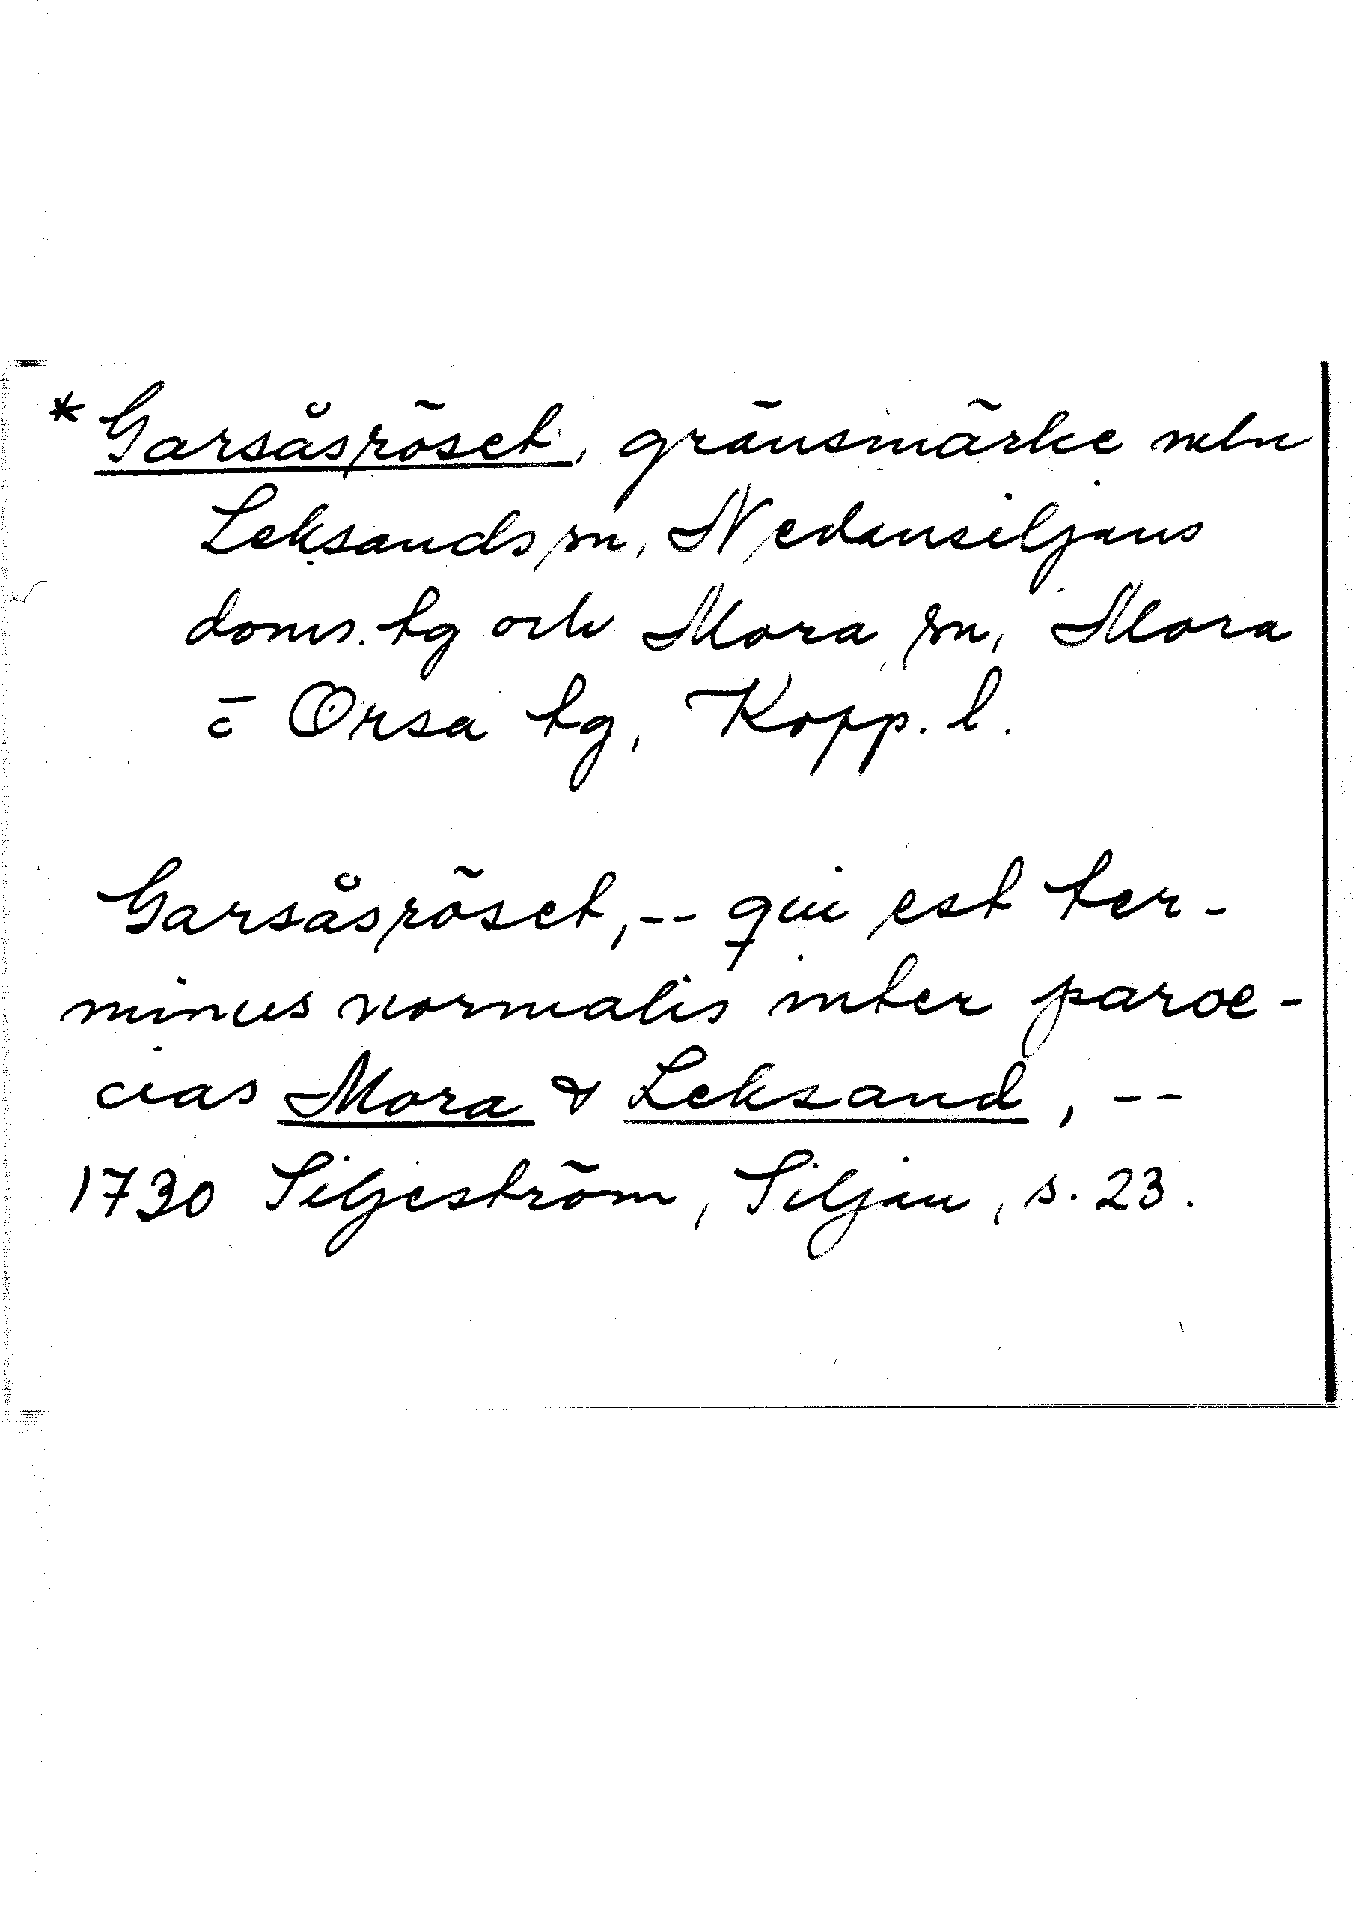 *Garsåsröset, gränsmärke mln
Leksands sn, Nedansiljans
doms. tg och Mora sn, Mora
o Orsa tg, Kopp. l.
Garsåsröset, -- qui est ter-
minus normalis inter paroe-
cias Mora & Leksand, --
1730 Siljeström, Siljan, s. 23.